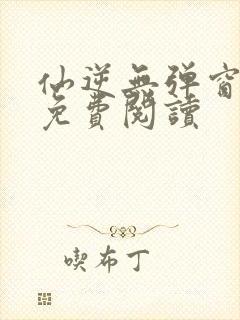 仙逆無彈窗
免費閱讀
喫布丁